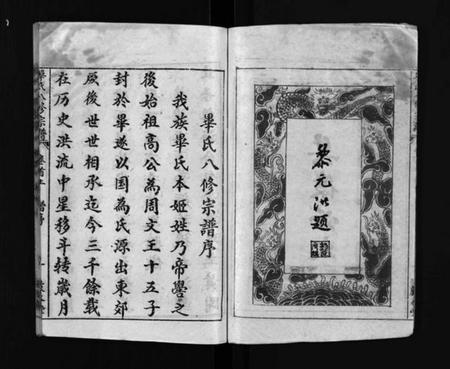 黎元洪題
畢氏八修宗譜序
我族畢氏本姬姓乃帝嚳之
後始祖高公為周文王十五子
封於畢遂以国為氏源出東郊
厥後世世相承迄今三千餘载
在历史洪流中星移斗转歲月
畢氏八修宗譜